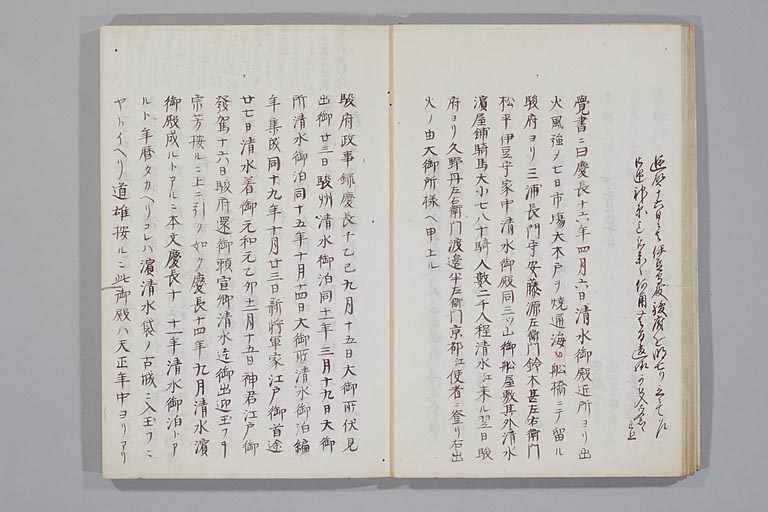 覺書ニ曰慶長十六年四月六日清水御殿近所ヨリ出
火風強メ七日市場大木戸ヲ燒通海ゟ舩橋ニテ留ル
駿府ヨリ三浦長門守安藤源左衛門鈴木甚左衛門
松平伊豆守家中清水御殿同三ツ山御舩屋敷其外清水
濱屋鋪騎馬大小七八十騎人數二千人程清水江来ル翌日駿
府ヨリ久野丹左衛門渡邊半左衛門京都江使者ニ登リ右出
火ノ由大御所様ヘ申上ル
駿府政事錄慶長十乙巳九月十五日大御所伏見
出御廿三日駿州清水御泊同十一年三月十九日大御
所清水御泊同十五年十月十四日大御所清水御泊編
年集成同十九年十月廿三日新將軍家江戸御首途
廿七日清水着御元和元乙卯十二月十五日神君江戸御
發駕十六日駿府還御頼宣卿清水迄御出迎玉フ
宗芳按ルニ上ニ引ク如ク慶長十四年九月清水濱
御殿成ルトアルニ本文慶長十 十一年清水御泊トア
ルト年暦タカヘリコレハ濱清水袋ノ古城ニ入玉フニ
ヤトイヘリ道雄按ルニ此御殿ハ天正年中ヨリアリ